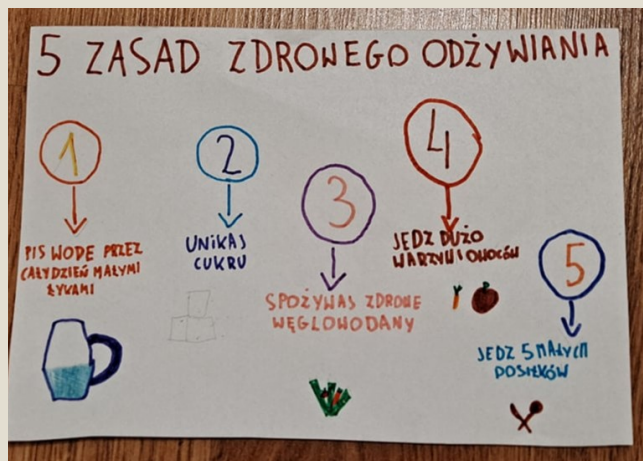 5 ZASAD ZDROWEGO ODŻYWIANIA
1
PIJ WODĘ PRZEZ
CAŁY DZIEŃ MAŁYMI
ŁYKAMI
2
UNIKAJ
CUKRU
3
SPOŻYWAJ ZDROWE
WĘGLOWODANY
4
JEDZ DUŻO
WARZYW I OWOCÓW
5
JEDZ 5 MAŁYCH
POSIŁKÓW